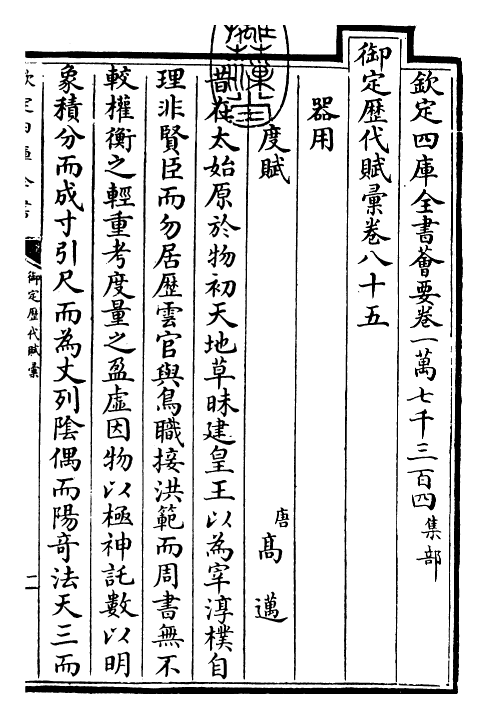 欽定四庫全書薈要卷一萬七千三百四集部
御定歴代賦彙卷八十五
器用
度賦
唐高邁
昔在太始原於物初天地草昧建皇王以為宰淳樸自
理非賢臣而勿居歴雲官與鳥職接洪範而周書無不
較權衡之輕重考度量之盈虛因物以極神託數以明
象積分而成寸引尺而為丈列陰偶而陽奇法天三而
御定歴代賦彙